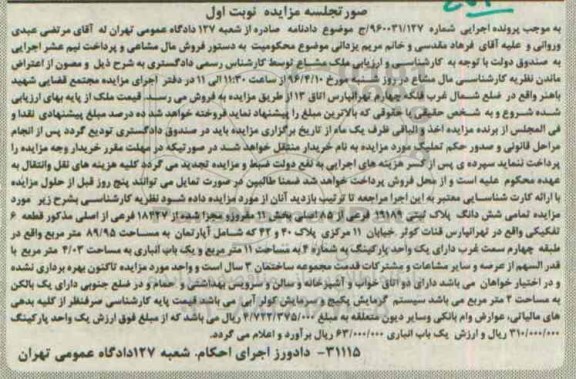 صورتجلسه مزایده نوبت اول
به موجب پرونده اجرایی شماره ۹۶۰۰۳۱/۱۲۷/ج موضوع دادنامه صادره از شعبه ۱۲۷ دادگاه عمومی تهران له آقای مرتضی عبدی
وروانی و علیه آقای فرهاد مقدسی و خانم مریم یزدانی موضوع محکومیت به دستور فروش مال مشاعی و پرداخت نیم عشر اجرایی
به صندوق دولت با توجه به کارشناسی و ارزیابی ملک مشاع توسط کارشناس رسمی دادگستری به شرح ذیل و مصون از اعتراض
ماندن نظریه کارشناسی مال مشاع در روز شنبه مورخ ۹۶/۴/۱۰ از ساعت ۱۱:۳۰ الی ۱۱ در دفتر اجرای مزایده مجتمع قضایی شهید
باهنر واقع در ضلع شمال غرب فلکه چهارم تهرانپارس اتاق ۱۳ از طریق مزایده به فروش می رسد. قیمت ملک از پایه بهای ارزیابی
شده شروع و به شخص حقیقی یا حقوقی که بالاترین مبلغ را پیشنهاد نماید فروخته خواهد شد ده درصد مبلغ پیشنهادی نقدا و
فی المجلس از برنده مزایده اخذ و الباقی ظرف یک ماه از تاریخ برگزاری مزایده باید در صندوق دادگستری تودیع گردد پس از انجام
مراحل قانونی و صدور حکم تملیک مورد مزایده به نام خریدار منتقل خواهد شد در صورتیکه در مهلت مقرر خریدار وجه مزایده را
پرداخت ننماید سپرده ی پس از کسر هزینه های اجرایی به نفع دولت ضبط و مزایده تجدید می گردد کلیه هزینه های نقل وانتقال به
عهده محکوم علیه است و از محل فروش پرداخت خواهد شد ضمنا طالبین در صورت تمایل می توانند پنج روز قبل از حلول مزایده
با ارائه کارت شناسایی معتبر به این اجرا مراجعه تا ترتیب بازدید آنان از مورد مزایده داده شود نظریه کارشناسی بشرح زیر مورد
مزایده تمامی شش دانگ پلاک ثبتی ۱۹۱۸۹ فرعی از ۸۵ اصلی بخش ۱۱ مفروزه مجزا شده از ۱۸۴۲۷ فرعی از اصلی مذکور قطعه ۶
تفکیکی واقع در تهرانپارس قنات کوثر خیابان ۱۱ مرکزی پلاک ۴۰ و ۴۲ که شامل آپارتمان به مساحت ۸۹/۹۵ متر مربع واقع در
طبقه چهارم سمت غرب دارای یک واحد پارکینگ به شماره ۶ به مساحت ۱۱ متر مربع و یک باب انباری به مساحت ۴/۰۳ متر مربع با
قدر السهم از عرصه و سایر مشاعات و مشترکات قدمت مجموعه ساختمان ۳ سال است و واحد مورد مزایده تاکنون بهره برداری نشده
و در اختیار خواهان می باشد دارای دو اتاق خواب و آشپزخانه و سالن و سرویس بهداشتی و حمام و در ضلع جنوبی دارای یک بالکن
به مساحت ۲ متر مربع می باشد سیستم گرمایش پکیج و سرمایش کولر آبی می باشد قیمت پایه کارشناسی صرفنظر از کلیه بدهی
های مالیاتی، عوارض وام بانکی وسایر دیون متعلقه به مبلغ ۴/۷۲۲/۳۷۵/۰۰۰ ریال می باشد که از مبلغ فوق ارزش یک واحد پارکینگ
۳۱۰/۰۰۰/۰۰۰ ریال و ارزش یک باب انباری ۶۳/۰۰۰/۰۰۰ ریال برآورد و اعلام می گردد.
۳۱۱۱۵- دادورز اجرای احکام، شعبه ۱۲۷دادگاه عمومی تهران